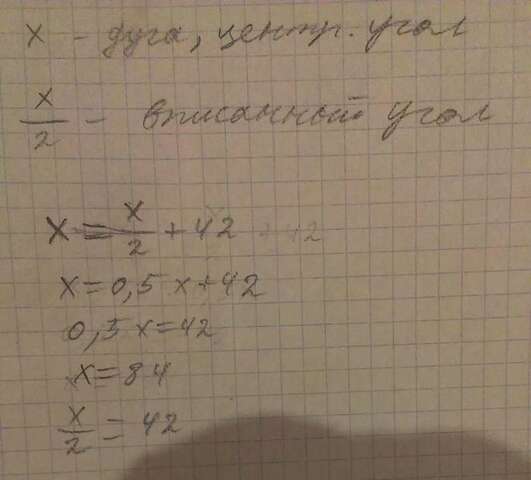 x - дуга, центр. угол
x/2 - вписанный угол
x = x/2 + 42
x = 0,5 x + 42
0,5 x = 42
x = 84
x/2 = 42